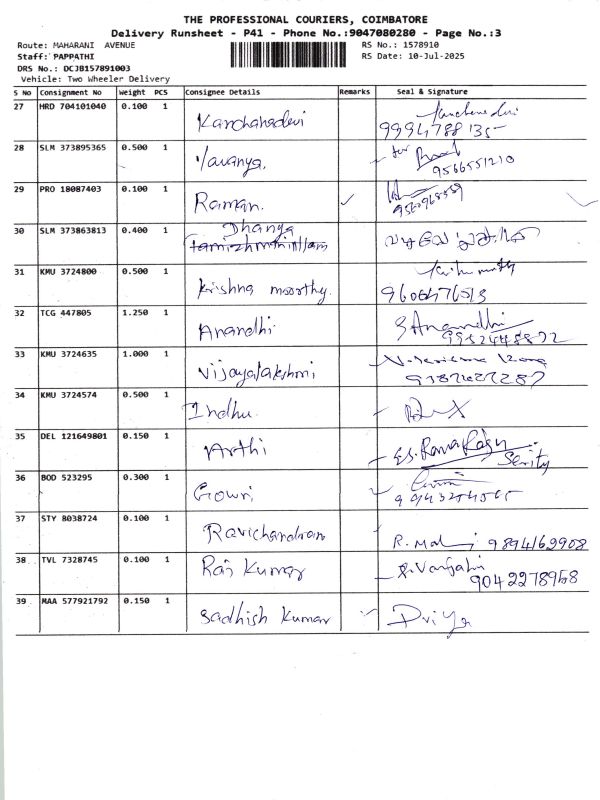 THE PROFESSIONAL COURIERS, COIMBATORE
Delivery Runsheet - P41 - Phone No.:9047080280 - Page No.:3
Route: MAHARANI AVENUE RS No.: 1578910
Staff: PAPPATHI RS Date: 10-Jul-2025
DRS No.: DCJB157891003
Vehicle: Two Wheeler Delivery
S No Consignment No Weight PCS Consignee Details Remarks Seal & Signature
27 HRD 704101040 0.100 1 Kanchanadevi
9994788135
28 SLM 373895365 0.500 1 Yavanya. for
9566551210
29 PRO 18087403 0.100 1 Raman.
30 SLM 373863813 0.400 1 Dhanya
31 KMU 3724800 0.500 1 Krishna moorthy.
9606476513
32 TCG 447805 1.250 1 Anandhi S Anandhi
33 KMU 3724635 1.000 1 Vijayalakshmi
34 KMU 3724574 0.500 1 Indhu.
35 DEL 121649801 0.150 1 Arthi
36 BOD 523295 0.300 1 Gowri
37 STY 8038724 0.100 1 Ravichandran
9894162908
38 TVL 7328745 0.100 1 Raj Kumar
9042278968
39 MAA 577921792 0.150 1 Sadhish Kumar Priya